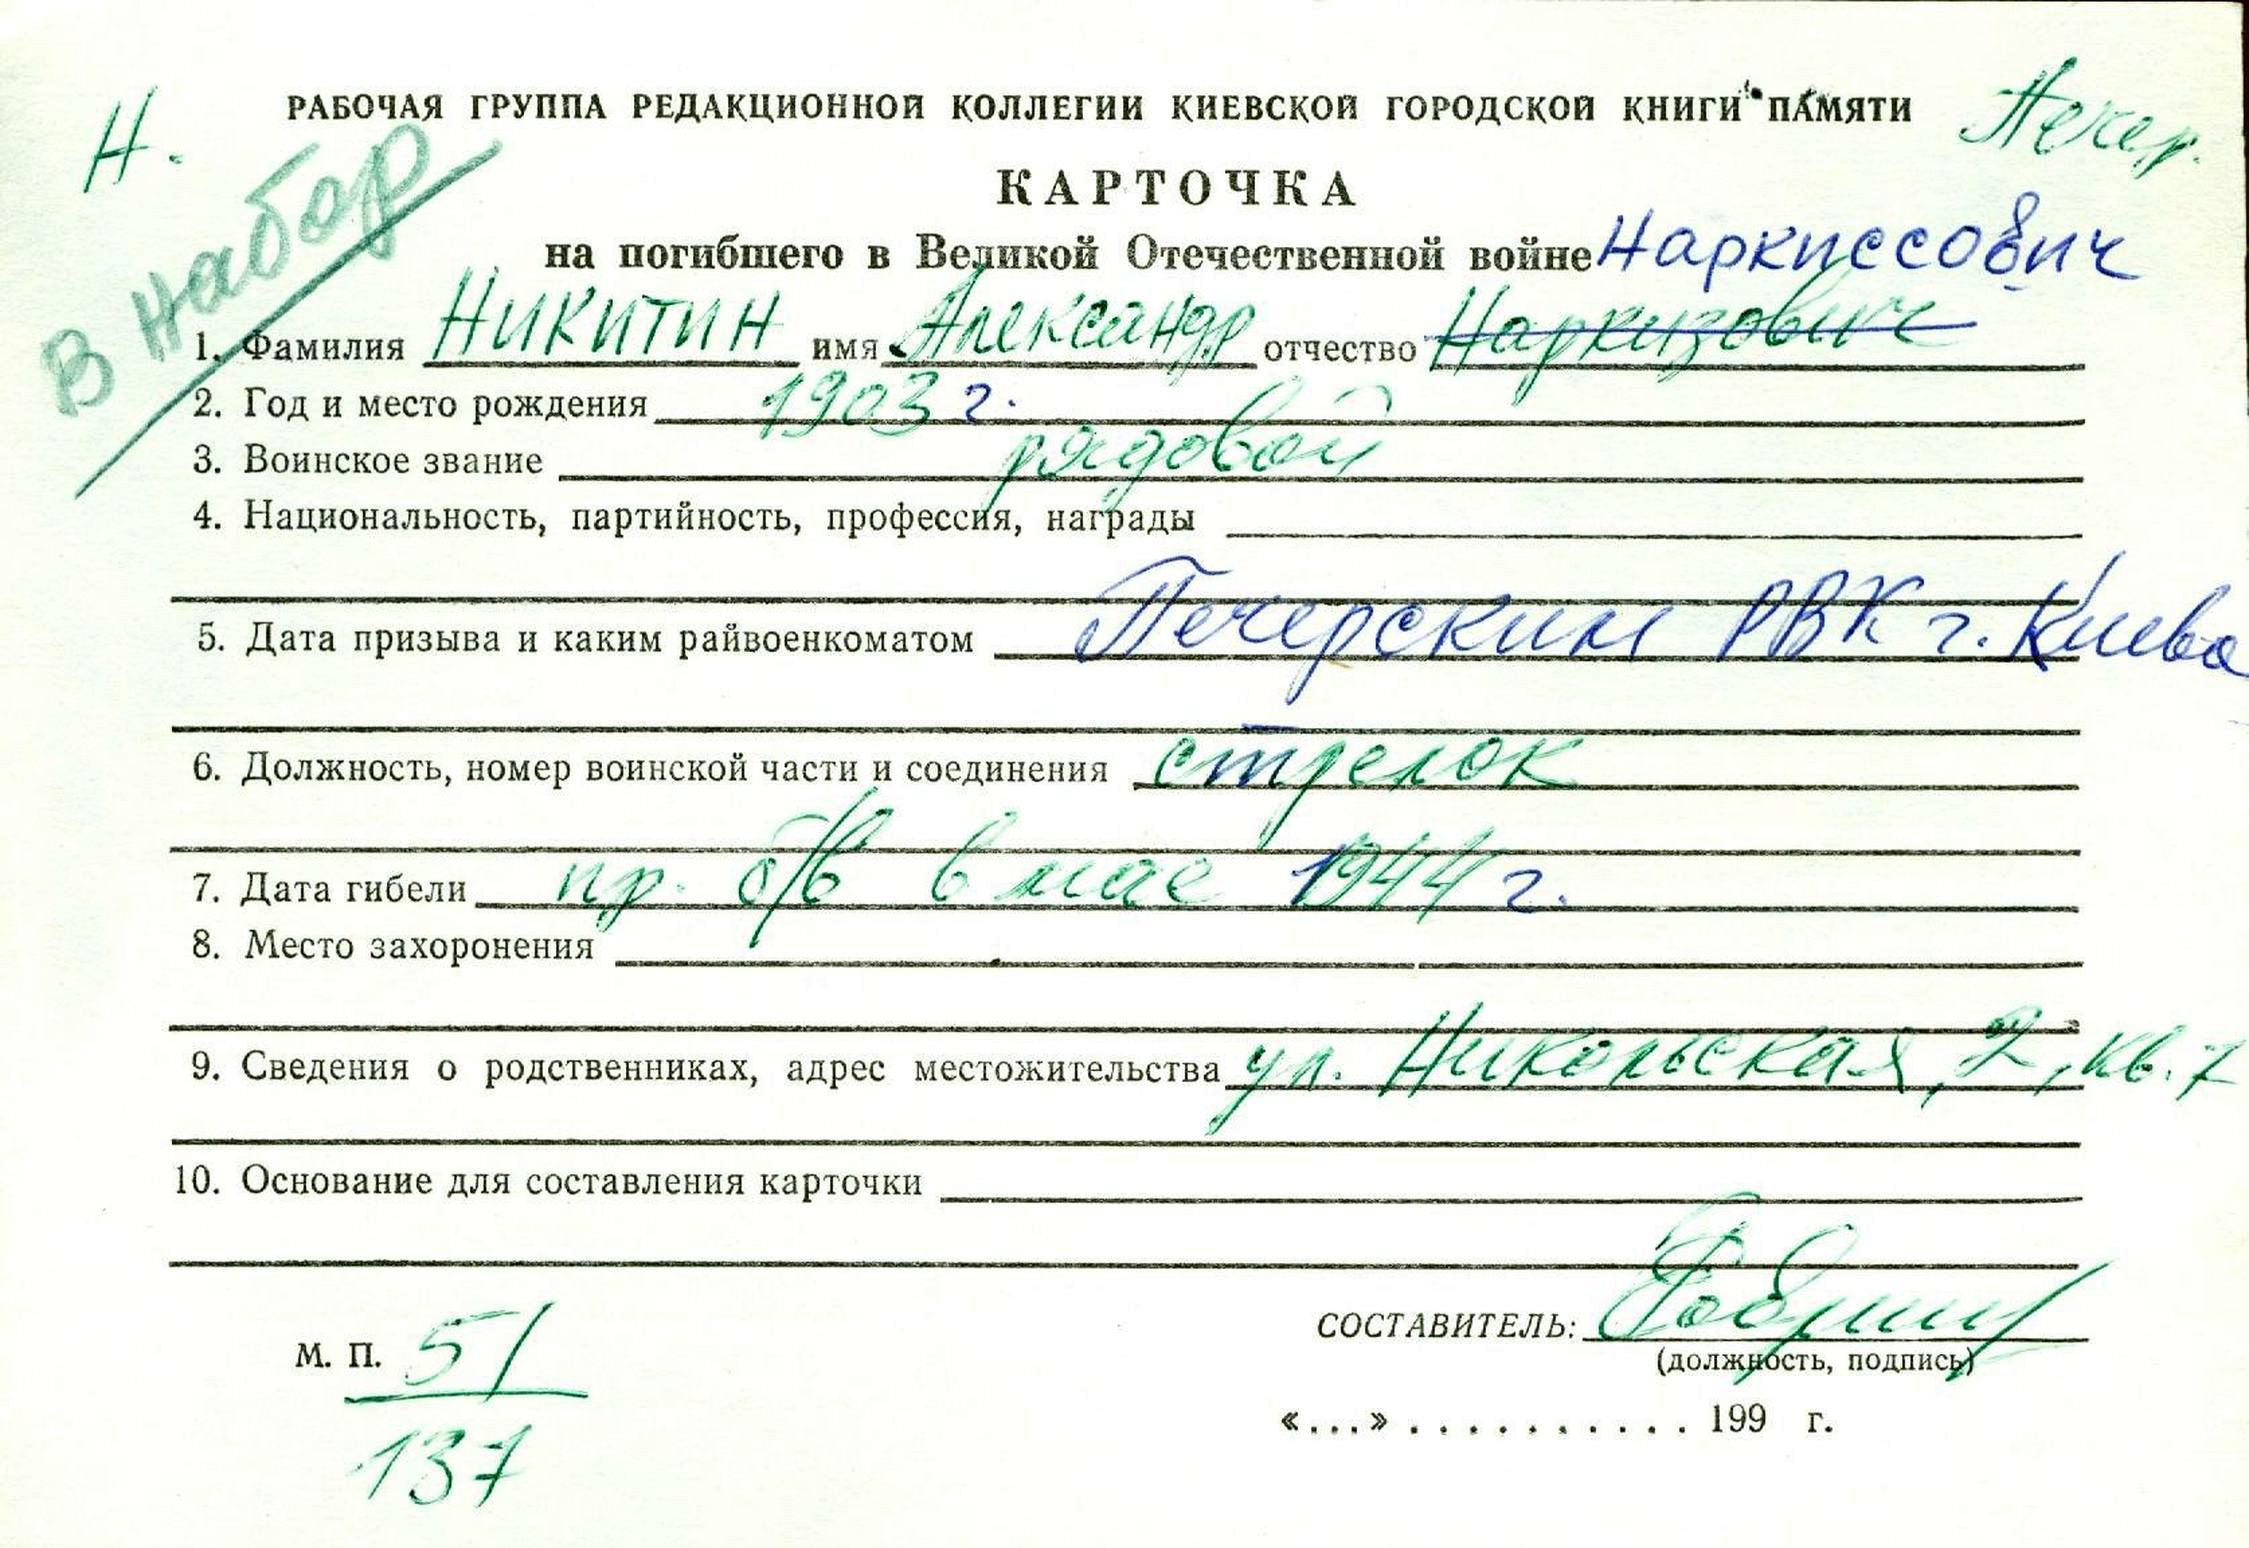 Н.
РАБОЧАЯ ГРУППА РЕДАКЦИОННОЙ КОЛЛЕГИИ КИЕВСКОЙ ГОРОДСКОЙ КНИГИ ПАМЯТИ
Печер.
В набор
КАРТОЧКА
на погибшего в Великой Отечественной войне Наркиссович
1. Фамилия Никитин имя Александр отчество Наркизович
2. Год и место рождения 1903 г.
3. Воинское звание рядовой
4. Национальность, партийность, профессия, награды
5. Дата призыва и каким райвоенкоматом Печерским РВК г. Киева
6. Должность, номер воинской части и соединения стрелок
7. Дата гибели пр. б/в в мае 1944 г.
8. Место захоронения
9. Сведения о родственниках, адрес местожительства ул. Никольская, 2, кв. 7
10. Основание для составления карточки
СОСТАВИТЕЛЬ:
(должность, подпись)
М. П. 51
137
«...» . . . . . . . . . . . 199 г.